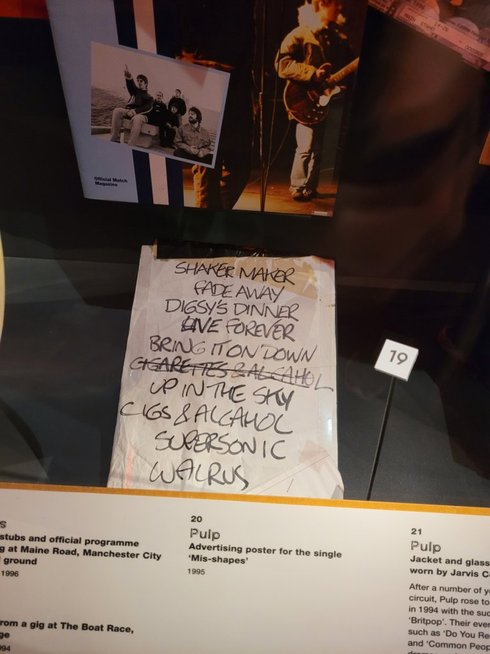 Official Match
Magazine
SHAKER MAKER
FADE AWAY
DIGSY'S DINNER
LIVE FOREVER
BRING IT ON DOWN
CIGARETTES & ALCAHOL
UP IN THE SKY
CIGS & ALCAHOL
SUPERSONIC
WALRUS
19
stubs and official programme
g at Maine Road, Manchester City
ground
1996
rom a gig at The Boat Race,
ge
994
20
Pulp
Advertising poster for the single
'Mis-shapes'
1995
21
Pulp
Jacket and glass
worn by Jarvis C
After a number of y
circuit, Pulp rose to
in 1994 with the suc
'Britpop'. Their eve
such as 'Do You Re
and 'Common Peop